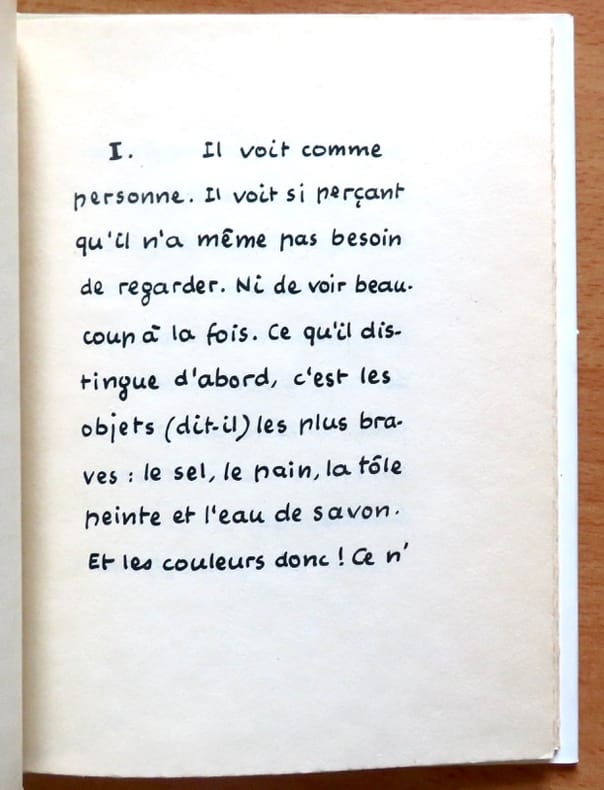 I. Il voit comme
personne. Il voit si perçant
qu'il n'a même pas besoin
de regarder. Ni de voir beau-
coup à la fois. Ce qu'il dis-
tingue d'abord, c'est les
objets (dit-il) les plus bra-
ves : le sel, le pain, la tôle
peinte et l'eau de savon.
Et les couleurs donc ! Ce n'